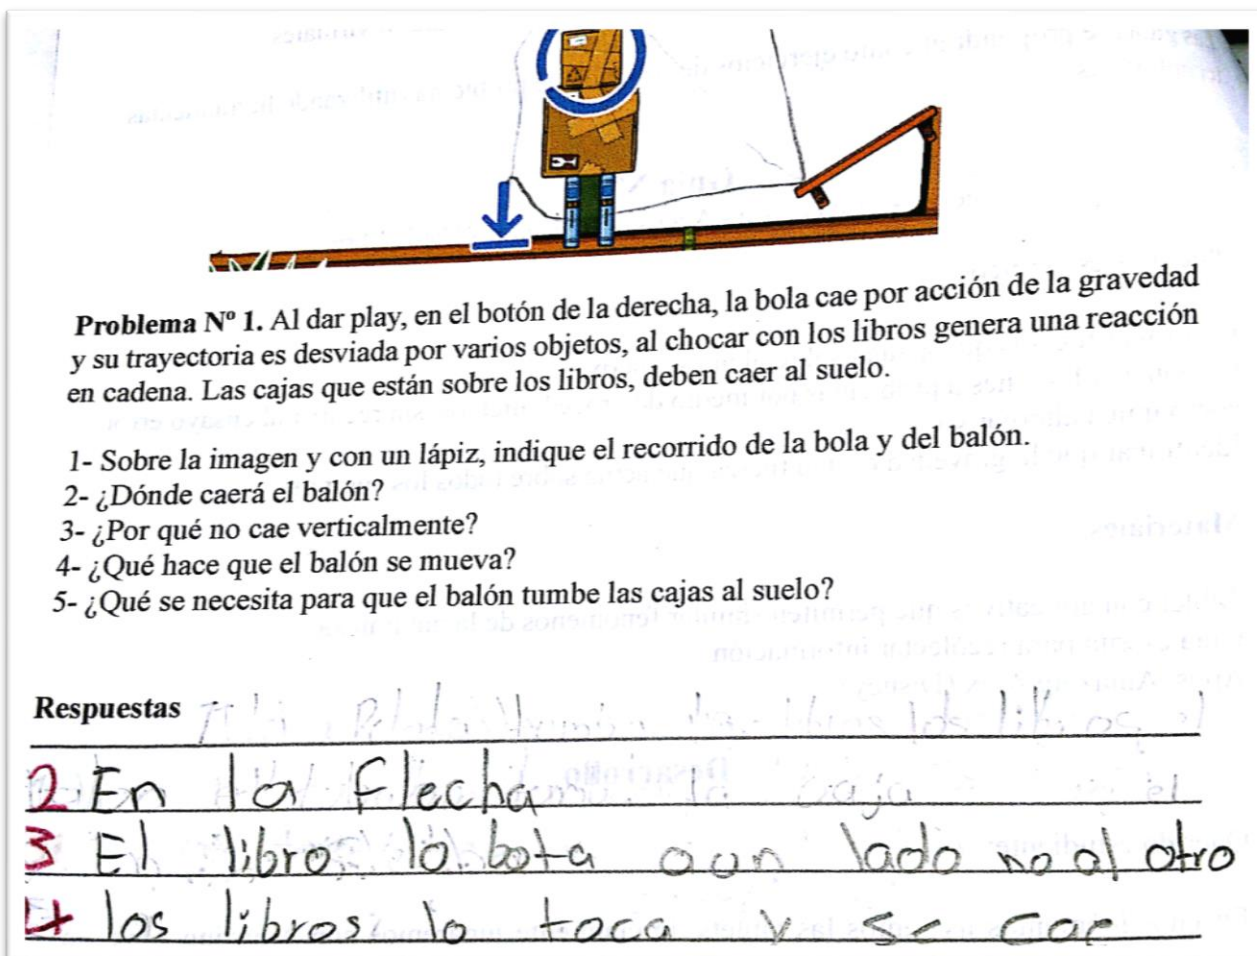 Problema Nº 1. Al dar play, en el botón de la derecha, la bola cae por acción de la gravedad
y su trayectoria es desviada por varios objetos, al chocar con los libros genera una reacción
en cadena. Las cajas que están sobre los libros, deben caer al suelo.
1- Sobre la imagen y con un lápiz, indique el recorrido de la bola y del balón.
2- ¿Dónde caerá el balón?
3- ¿Por qué no cae verticalmente?
4- ¿Qué hace que el balón se mueva?
5- ¿Qué se necesita para que el balón tumbe las cajas al suelo?
Respuestas
2 En la flecha
3 El libro lo bota a un lado no al otro
4 los libros lo toca y se cae